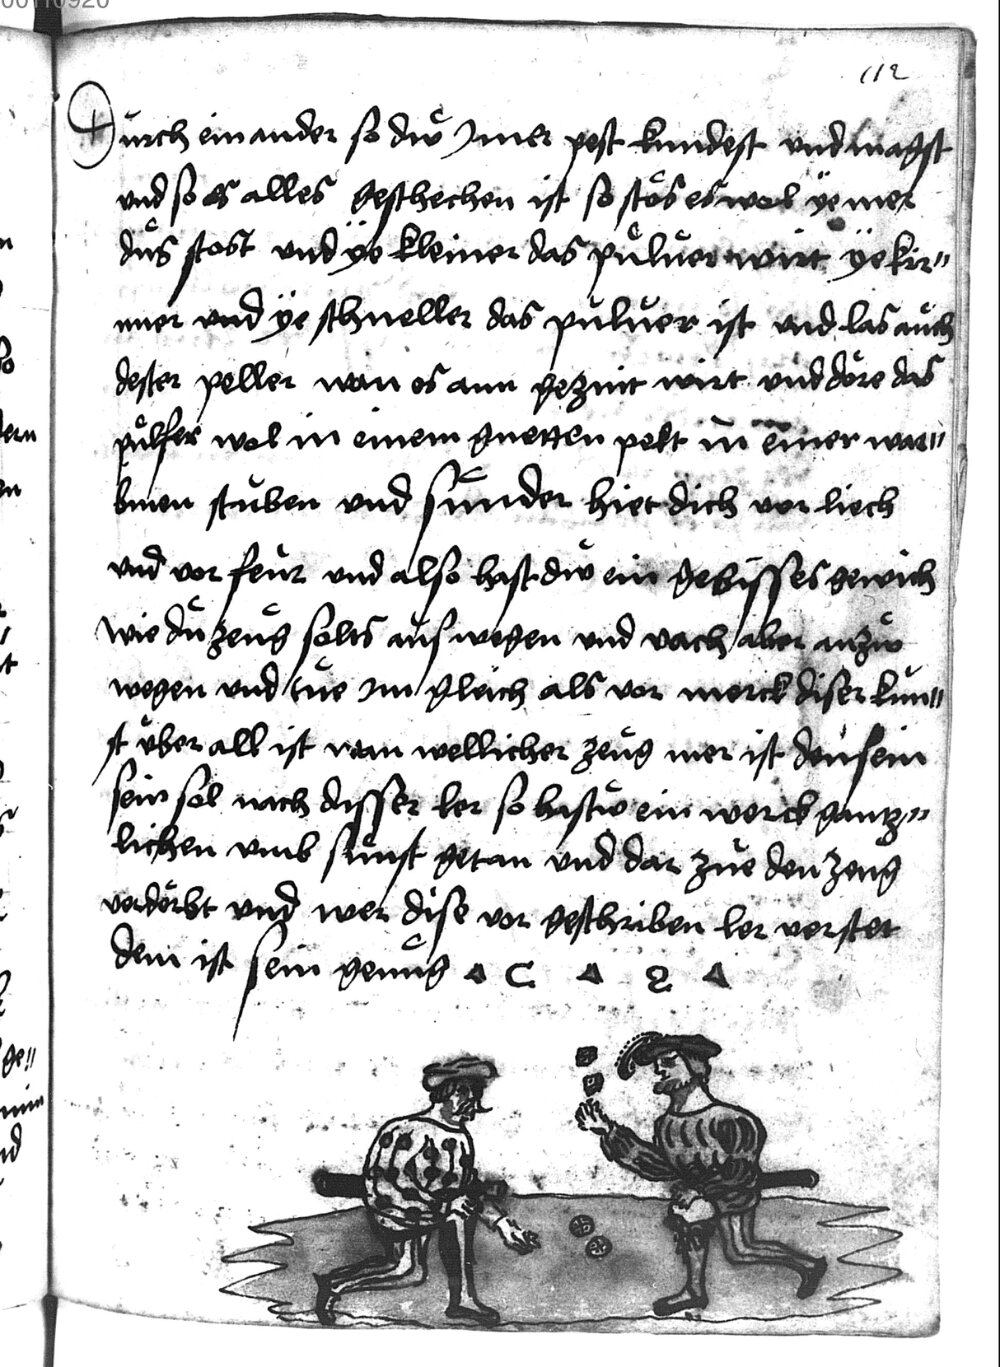 00110920
112
Durch ein ander so diw Imer pest kundest vnd magst
vnd so es alles geschechen ist so stos es wol ÿe mer
dus stost vnd ÿe kleiner das puluer wirt ÿe kir〃
nner vnd ÿe schneller das puluer ist vnd las auch
dester peller wan es ann gezint wirt vnd dore das
pulfer wol in einem guetten pekt in einer war〃
bmen stuben vnd sunder hiet dich vor liech
vnd vor feur vnd also hast diw ein gebisses gewich
wie du zeug solts aus wegen vnd vach aber anzw
wegen vnd tue Im gleich als vor merck diser kun〃
st vber all ist wan wellicher zeug mer ist den sein
sein sol nach disser ler so hastw ein werck gantz〃
lichen vmb sunst getan vnd dar zue den zeug
verderbt vnd wer dise vor geschriben ler verstet
dem ist sein genug
ern
ge〃